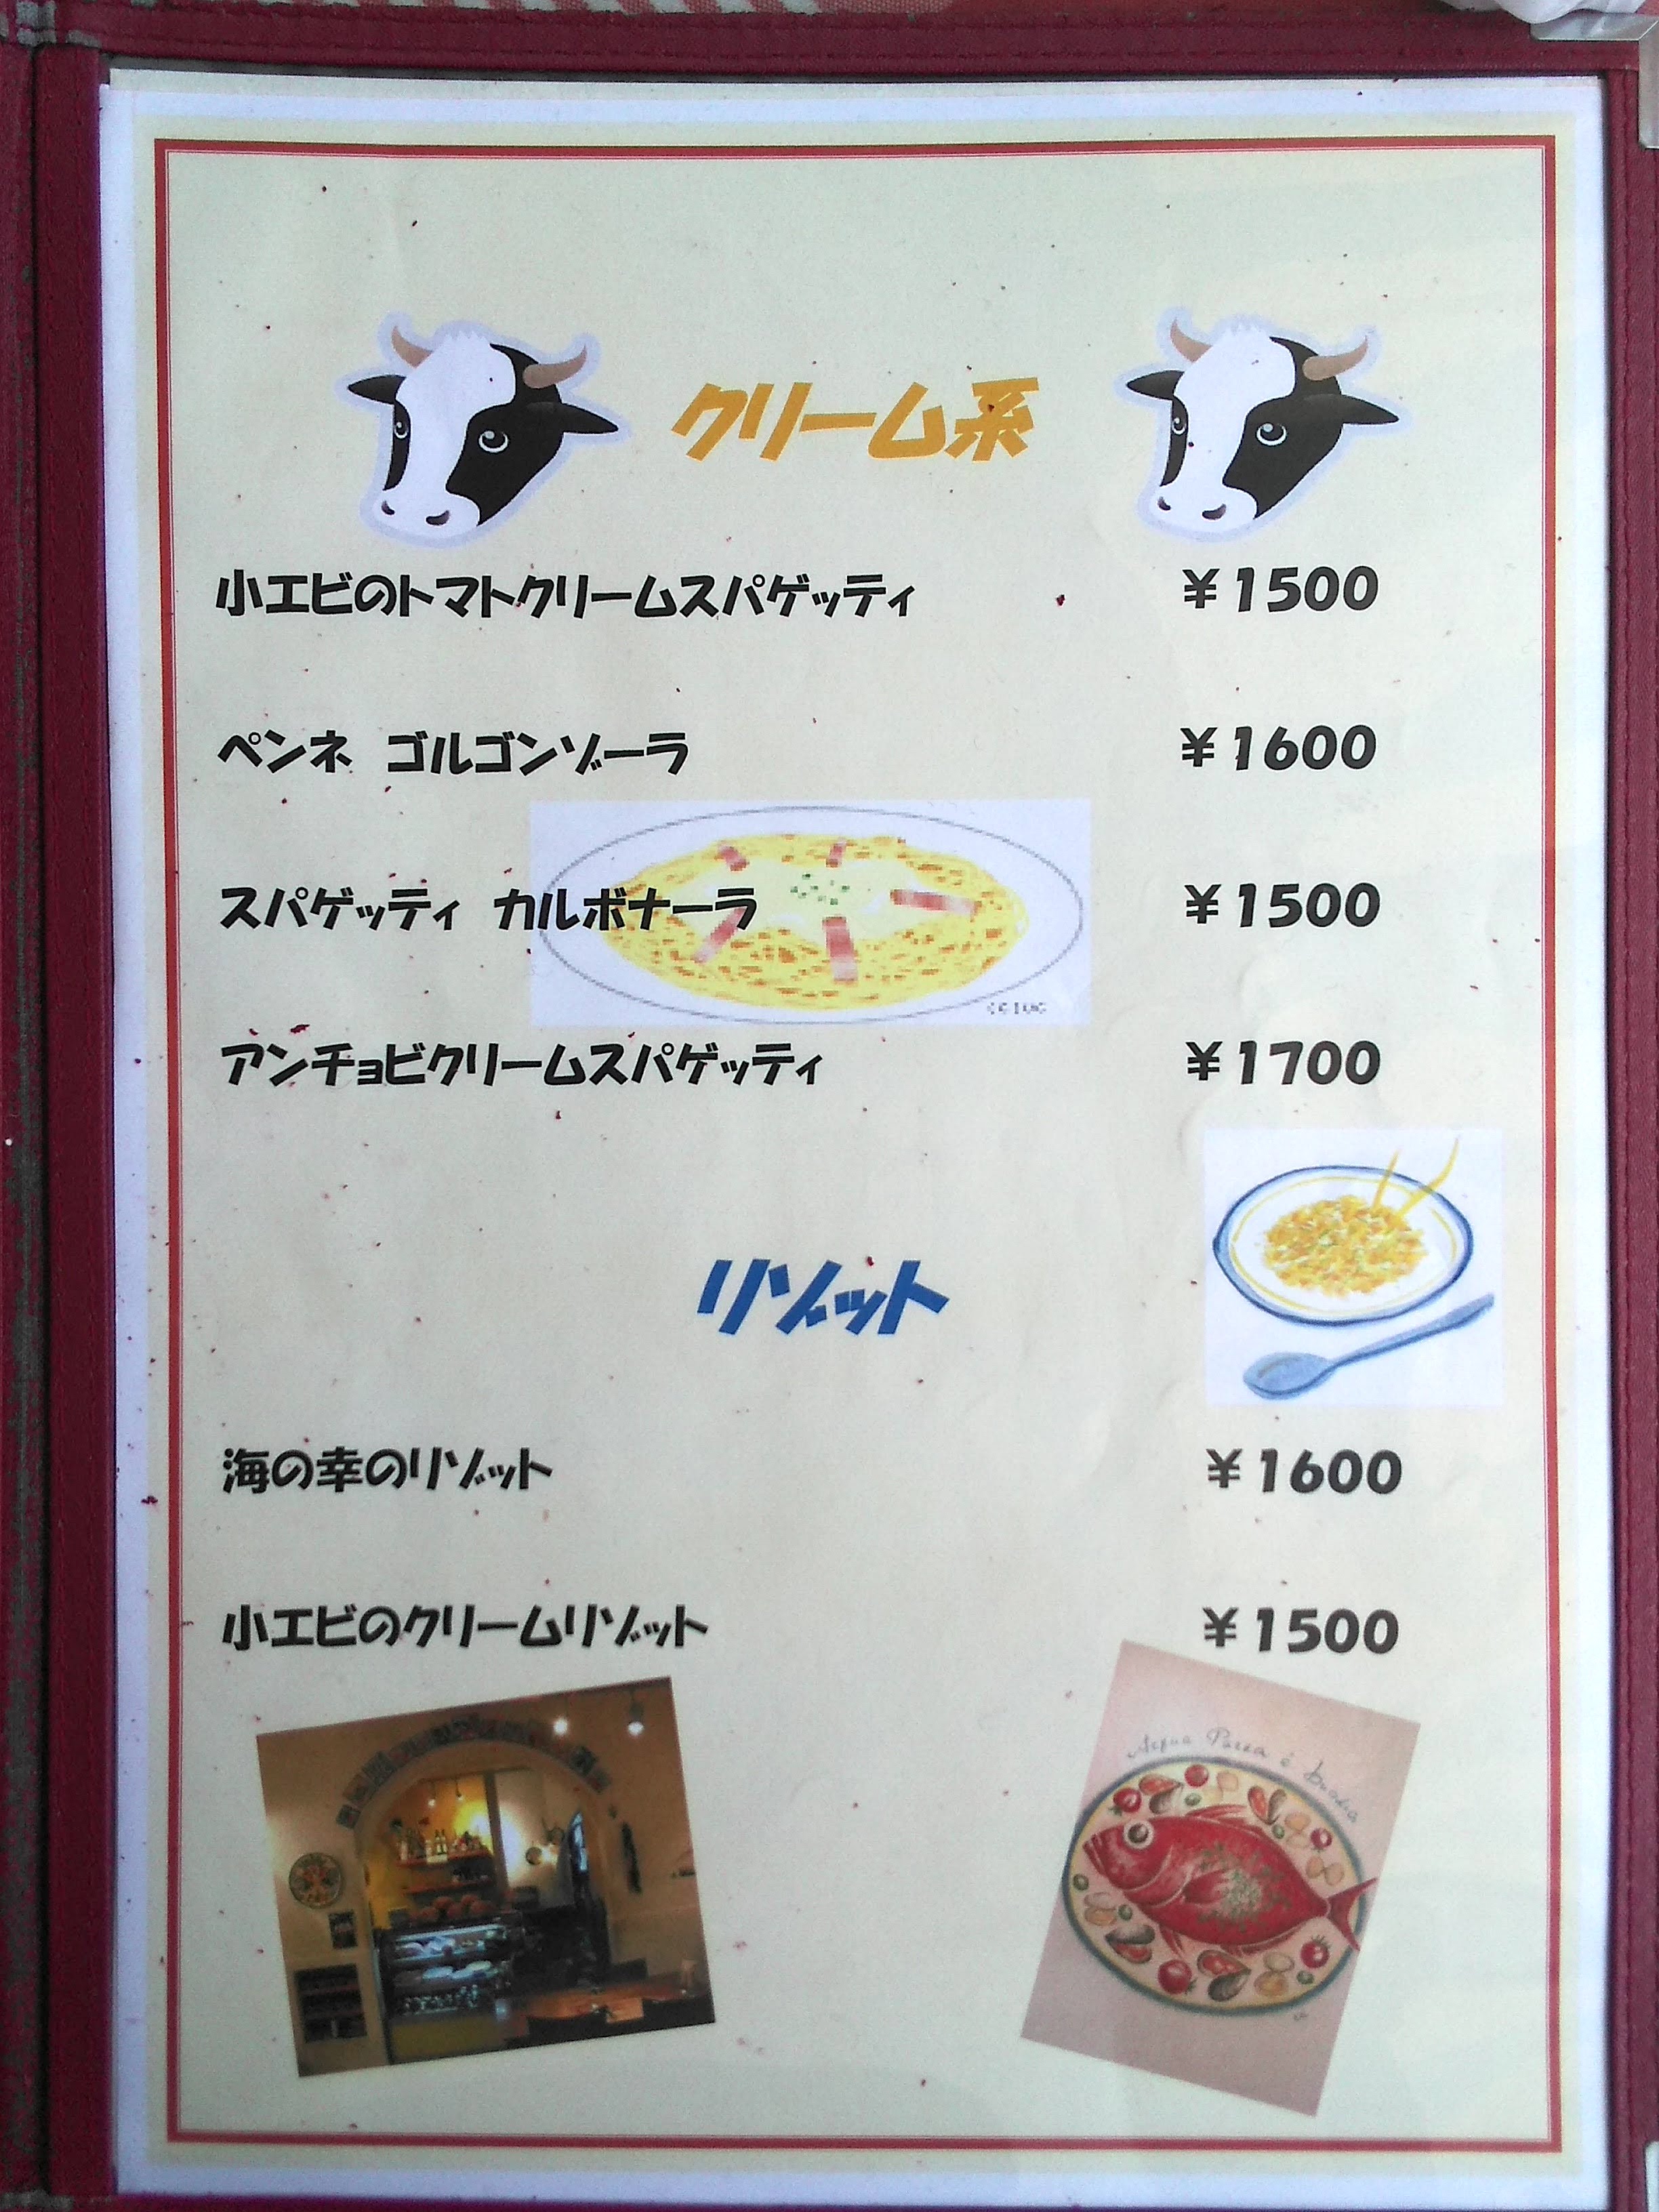 クリーム系
小エビのトマトクリームスパゲッティ ￥1500
ペンネ ゴルゴンゾーラ ￥1600
スパゲッティ カルボナーラ ￥1500
アンチョビクリームスパゲッティ ￥1700
リゾット
海の幸のリゾット ￥1600
小エビのクリームリゾット ￥1500
Acqua Pazza è buona